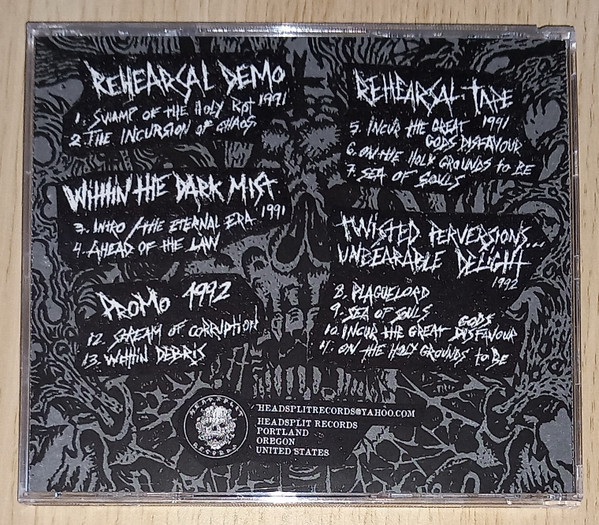 REHEARSAL DEMO
1991
1. SWAMP OF THE HOLY ROT
2. THE INCURSION OF CHAOS
WITHIN THE DARK MIST
1991
3. INTRO / THE ETERNAL ERA
4. AHEAD OF THE LAW
PROMO 1992
12. STREAM OF CORRUPTION
13. WITHIN DEBRIS
REHEARSAL TAPE
1991
5. INCUR THE GREAT
GODS DISFAVOUR
6. ON THE HOLY GROUNDS TO BE
7. SEA OF SOULS
TWISTED PERVERSIONS...
UNBEARABLE DELIGHT
1992
8. PLAGUELORD
9. SEA OF SOULS
10. INCUR THE GREAT GODS DISFAVOUR
11. ON THE HOLY GROUNDS TO BE
HEADSPLIT
RECORDS
HEADSPLITRECORDS@YAHOO.COM
HEADSPLIT RECORDS
PORTLAND
OREGON
UNITED STATES